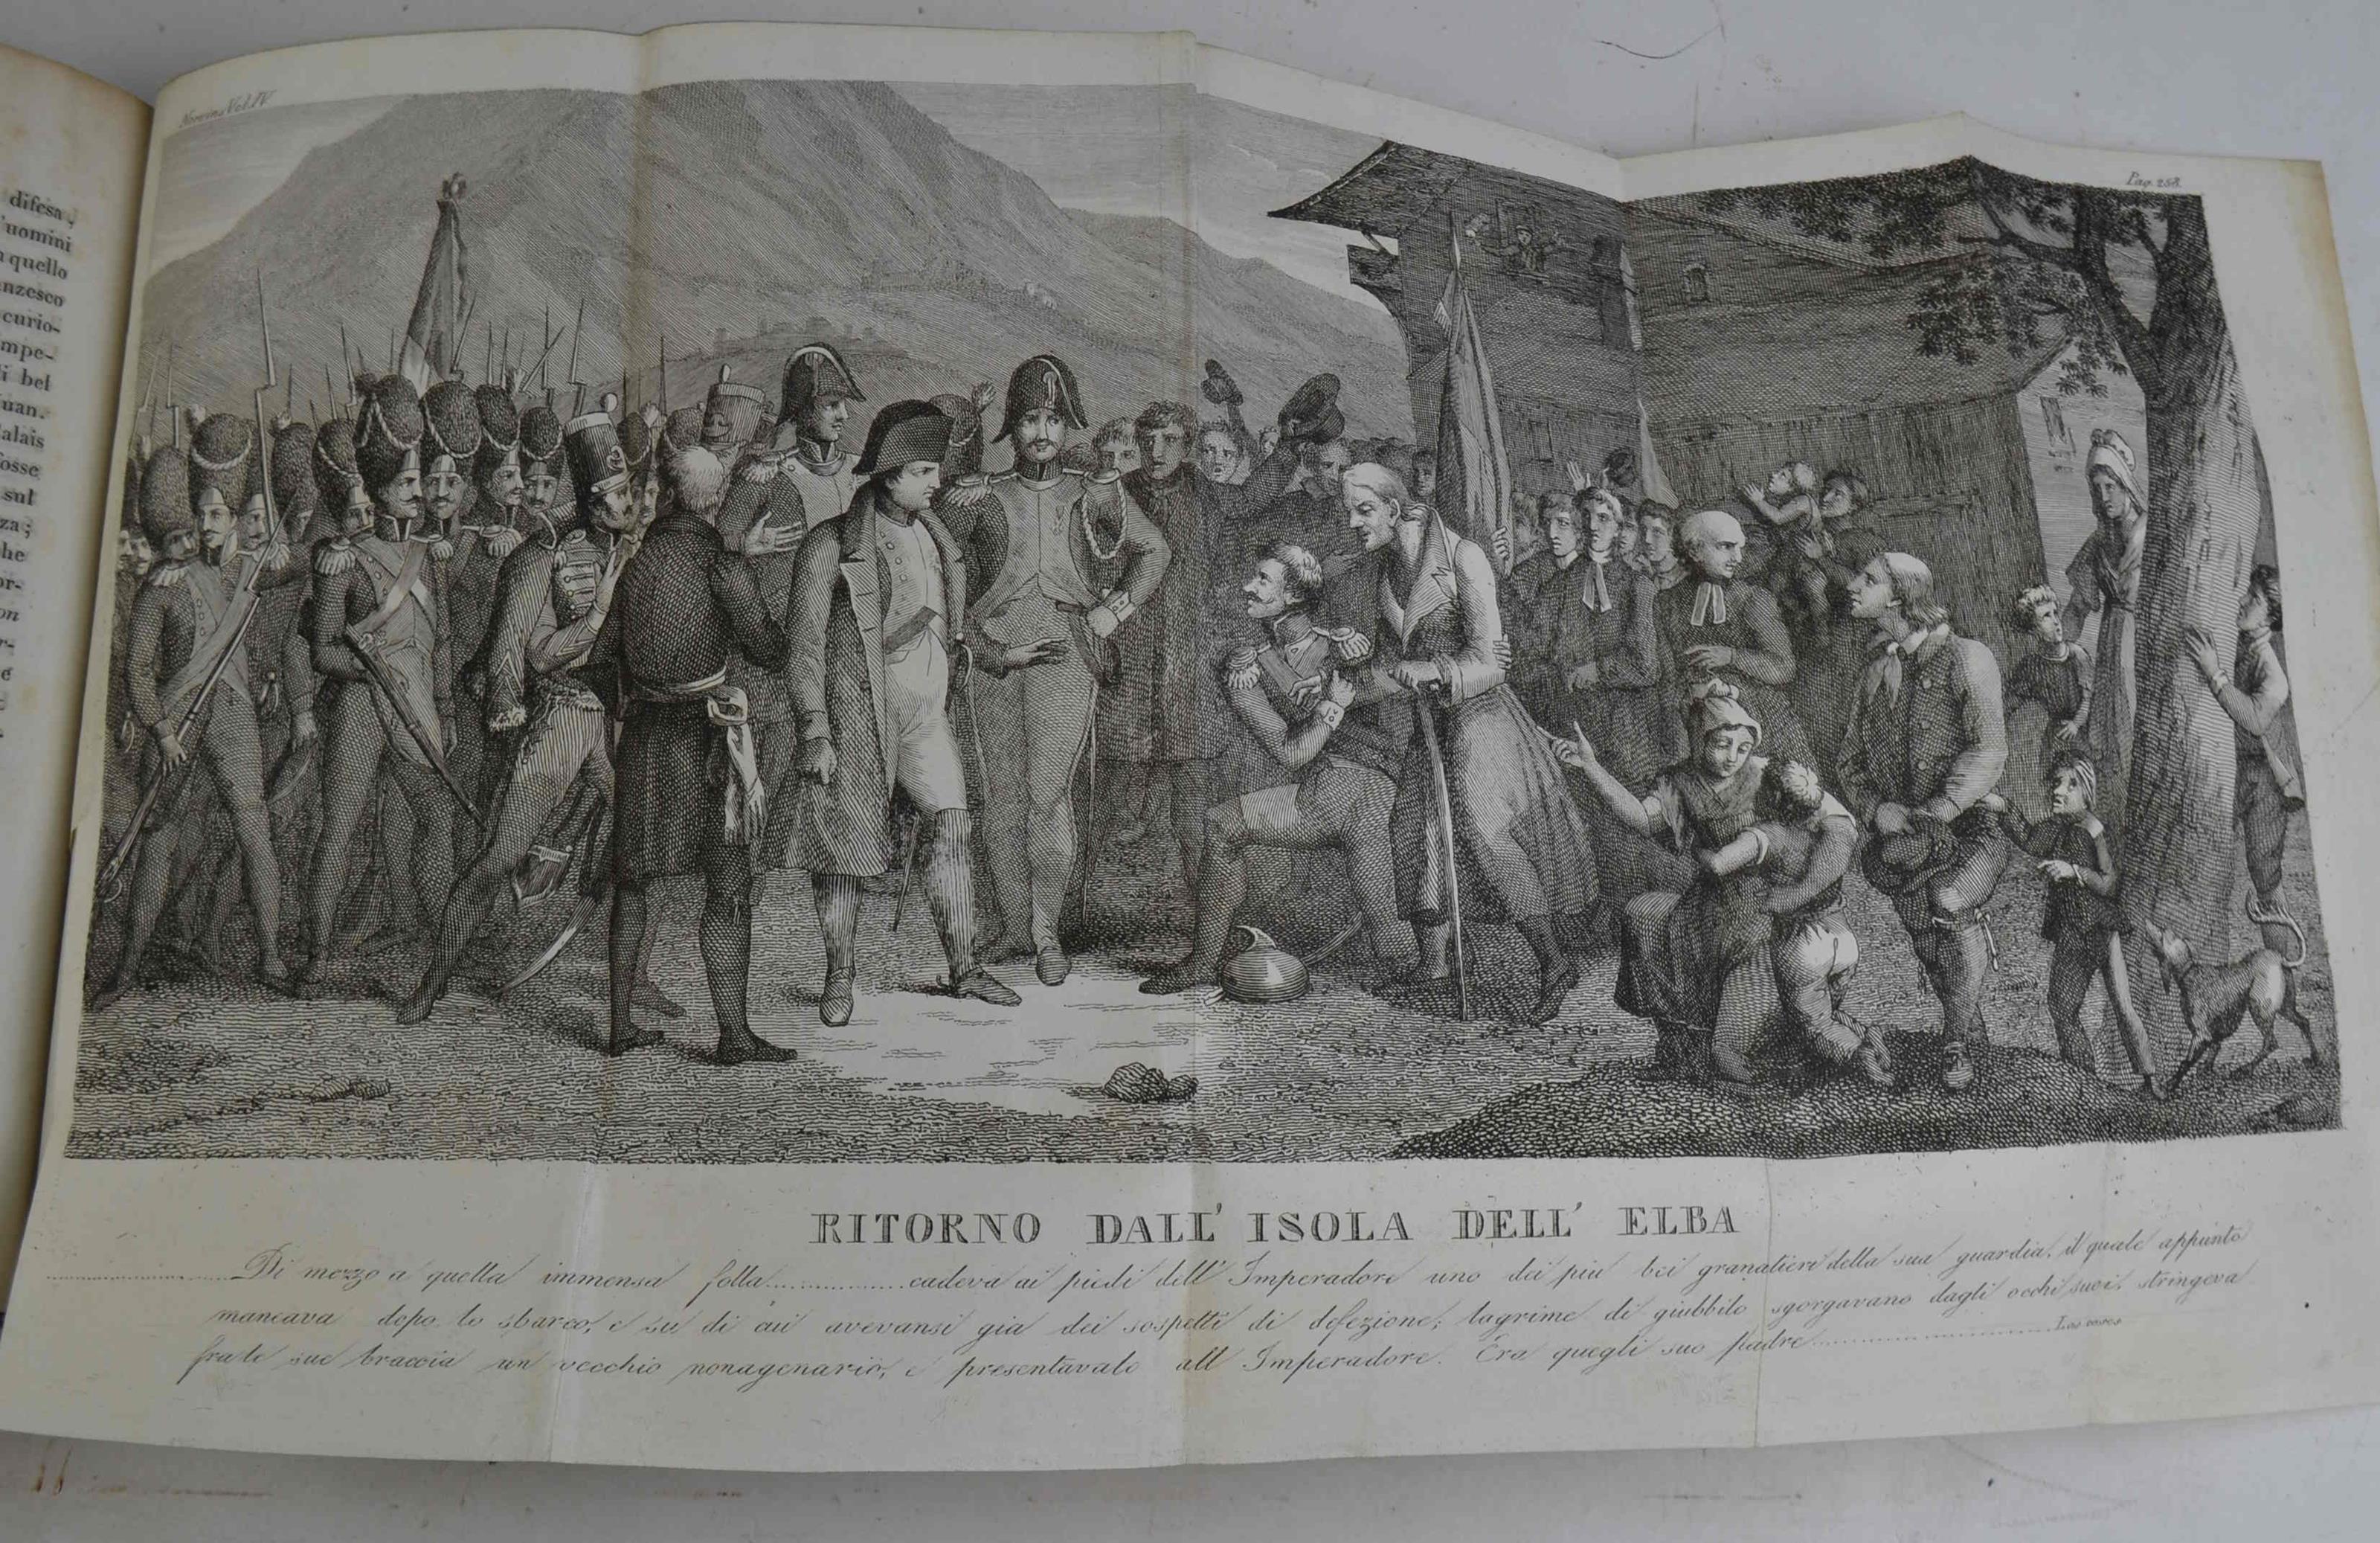 difesa,
uomini
quello
nzesco
curio-
mpe-
i bel
uan.
alais
fosse
sul
za;
he
or-
on
r-
e
Norvins Vol. IV
Pag. 258.
RITORNO DALL' ISOLA DELL' ELBA
Di mezzo a quella immensa folla cadeva ai piedi dell' Imperadore uno dei piu bei granatieri della sua guardia, il quale appunto
mancava dopo lo sbarco, e su di cui avevansi gia dei sospetti di defezione; lagrime di giubbilo sgorgavano dagli occhi suoi, stringeva
fra le sue braccia un vecchio nonagenario, e presentavalo all' Imperadore. Era quegli suo padre Las cases